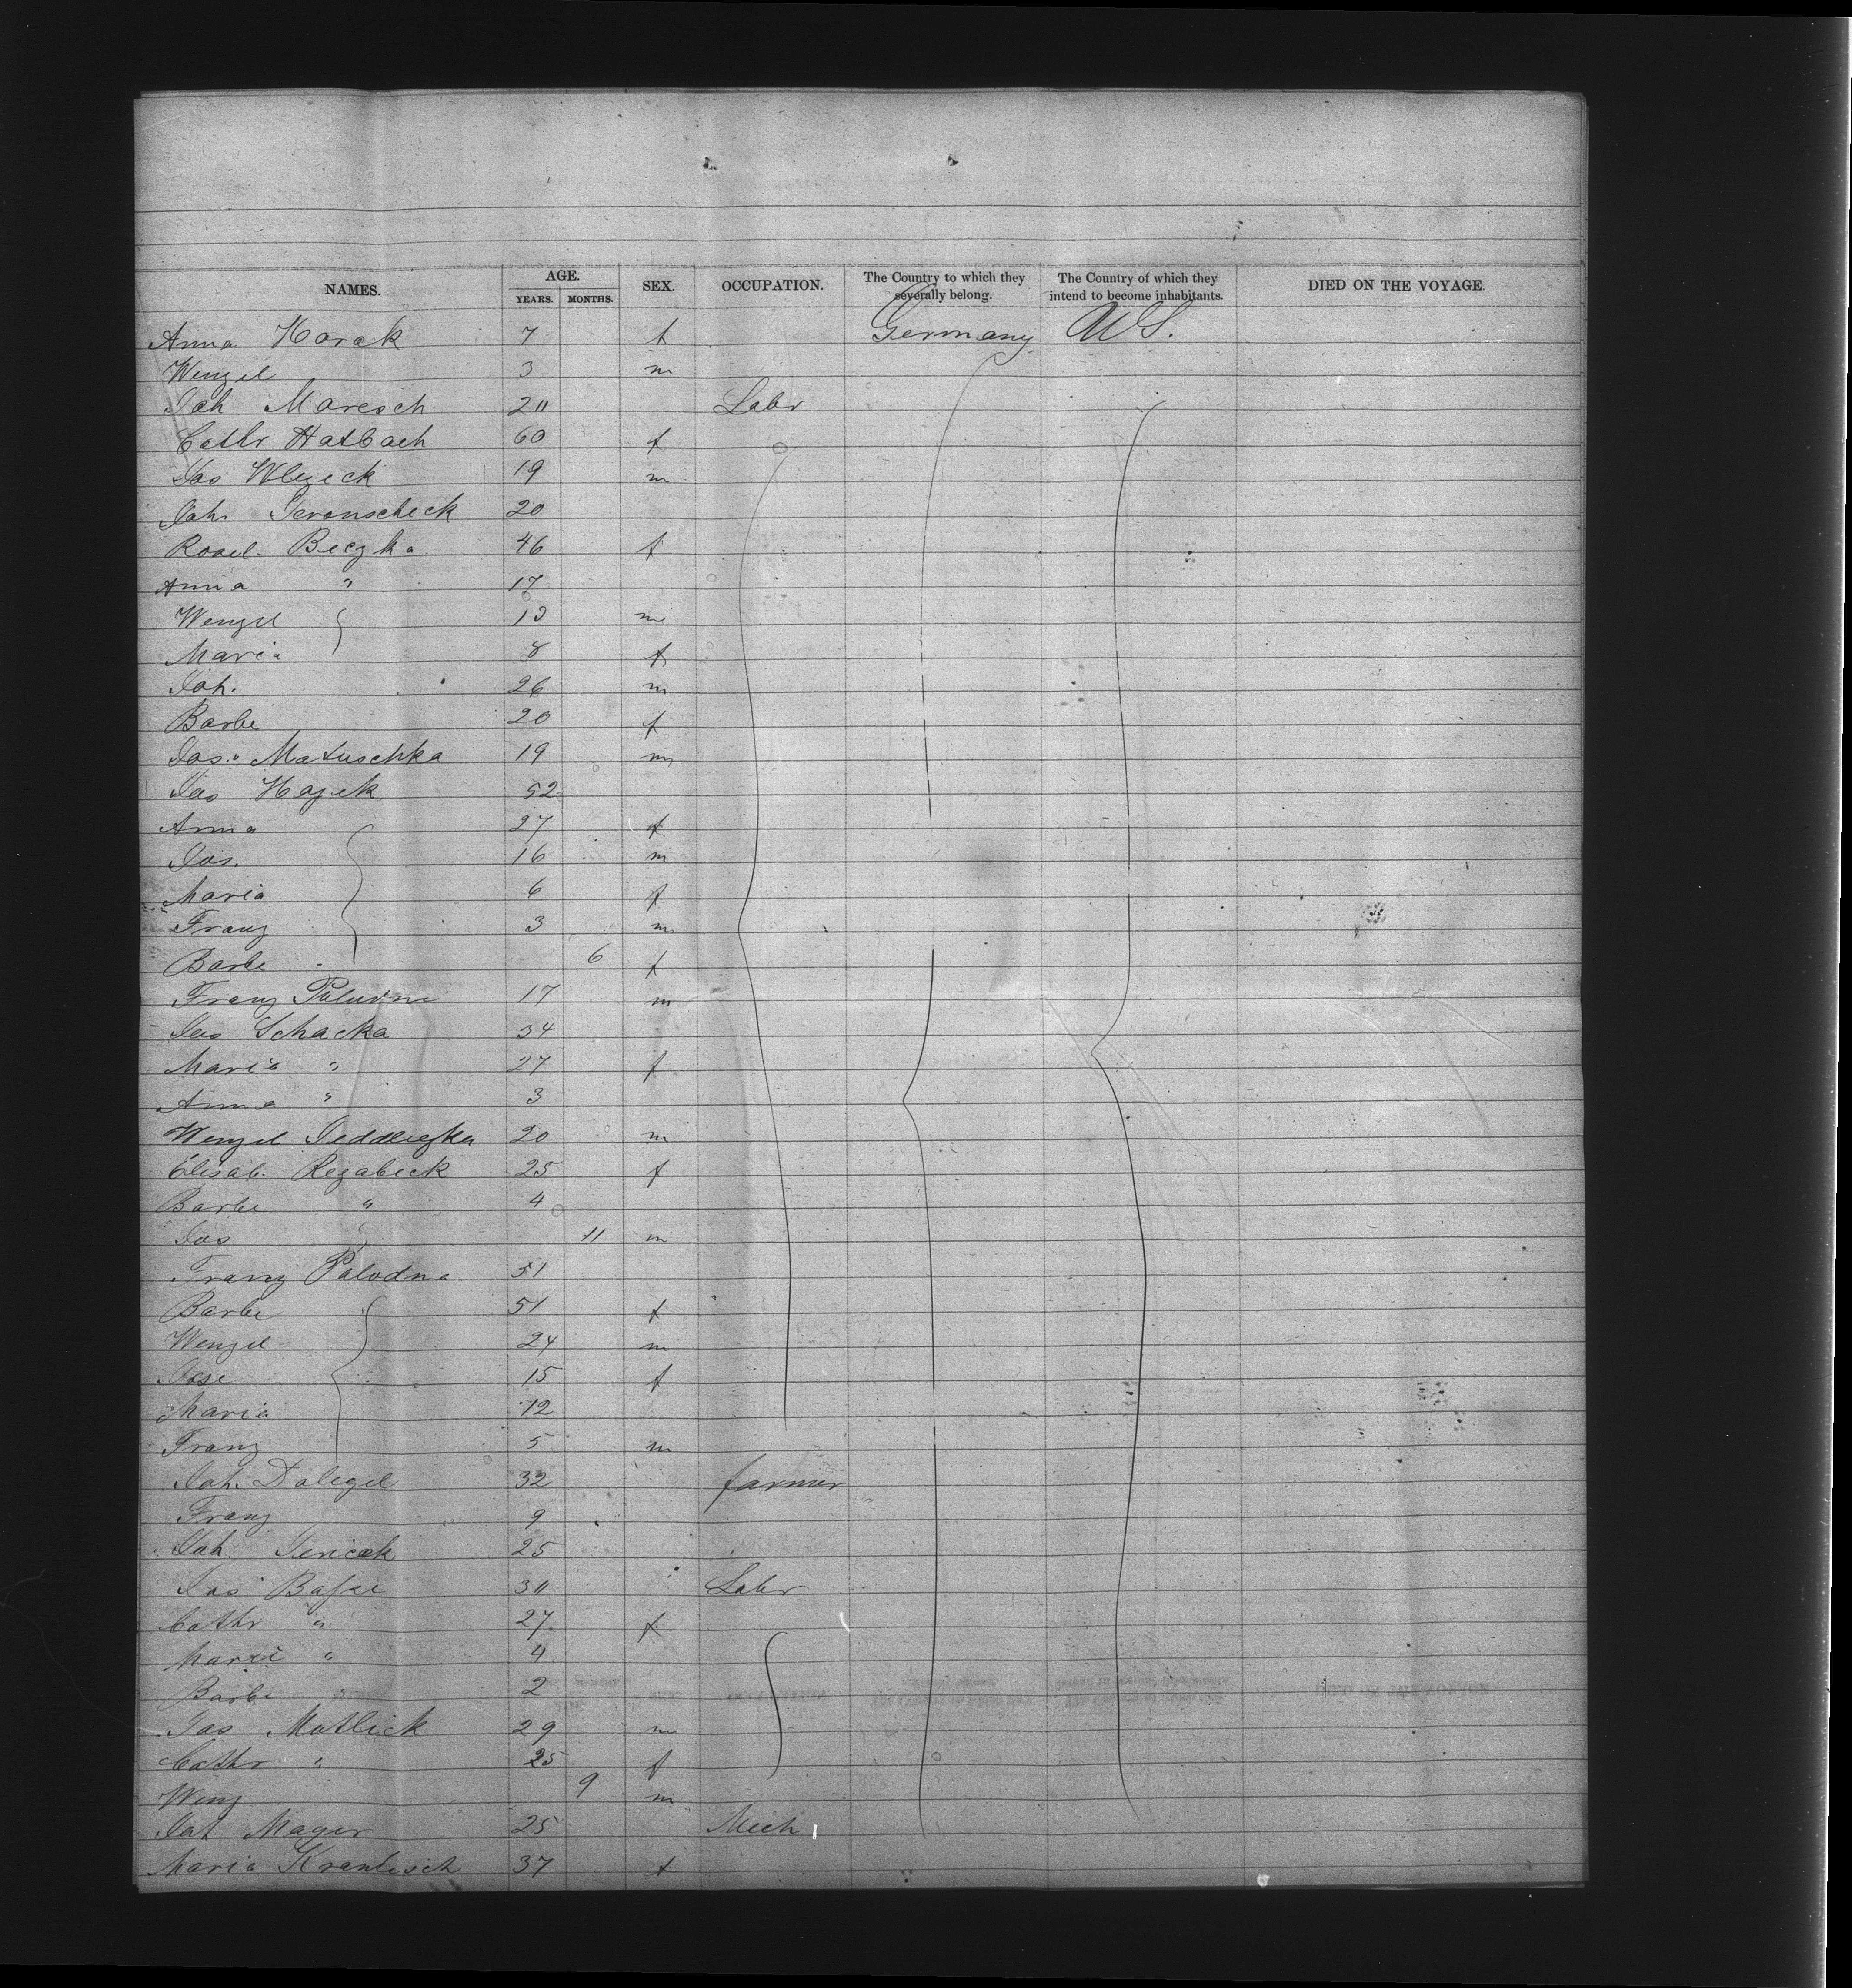 NAMES. AGE. YEARS. MONTHS. SEX. OCCUPATION. The Country to which they severally belong. The Country of which they intend to become inhabitants. DIED ON THE VOYAGE.
Anna Horak 7 f Germany US.
Wenzel 3 m
Joh Maresch 20 Labr
Cathr Hatbach 60 f
Jos Wlezeck 19 m
Joh. Jeronscheck 20
Rosal. Beczka 46 f
Anna " 17
Wenzel 13 m
Maria 8 f
Joh. 26 m
Barbe 20 f
Jos. Matuschka 19 m
Jos Hajek 52
Anna 27 f
Jos. 16 m
Maria 6 f
Franz 3 m
Barbe 6 f
Franz 17 m
Jos Schacka 34
Maria " 27 f
Anna " 3
Wenzel Seddleczka 20 m
Elisab. Rezabeck 25 f
Barbe " 4
Jos " 11 m
Franz Palodna 51
Barbe 51 f
Wenzel 24 m
Jose 15 f
Maria 12
Franz 5 m
Joh. Dolezel 32 farmer
Franz 9
Joh. Jericek 25
Jos 30 Labr
Cathr " 27 f
Maria " 4
Barbe " 2
Jos Motlick 29 m
Cathr " 25 f
Wenz 9 m
Mayer 25 Mech
Maria 37 f